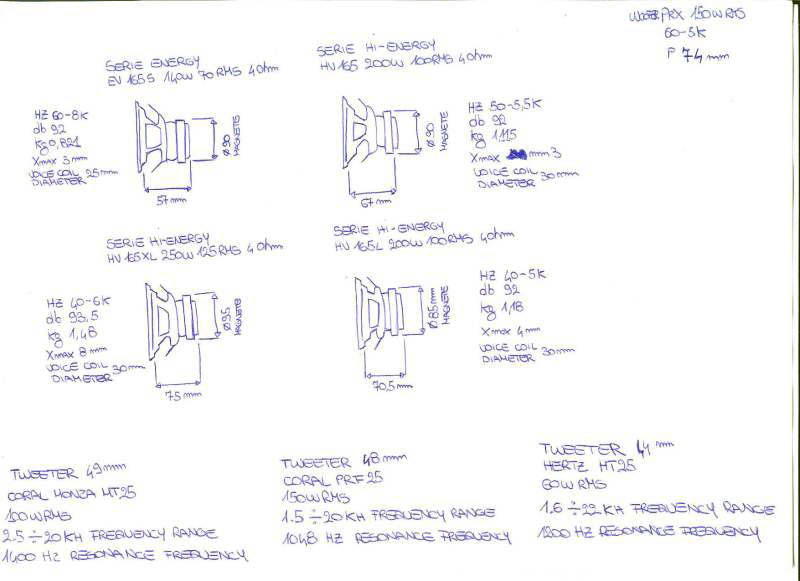 WOOFER PRX 150W RMS
60-5K
P 74mm
SERIE ENERGY
EV 165S 140W 70RMS 4Ohm
HZ 60-8K
db 92
kg 0,821
Xmax 3mm
VOICE COIL 25mm
DIAMETER
Ø90
MAGNETE
57mm
SERIE Hi-ENERGY
HV 165 200W 100RMS 4Ohm
Ø90
MAGNETE
67mm
HZ 50-5,5K
db 92
kg 1,115
Xmax mm3
VOICE COIL
DIAMETER 30mm
SERIE Hi-ENERGY
HV 165XL 250W 125RMS 4Ohm
HZ 40-6K
db 93,5
kg 1,48
Xmax 8mm
VOICE COIL
DIAMETER 30mm
Ø95
MAGNETE
75mm
SERIE Hi-ENERGY
HV 165L 200W 100RMS 4Ohm
Ø85mm
MAGNETE
70,5mm
HZ 40-5K
db 92
kg 1,18
Xmax 4mm
VOICE COIL
DIAMETER 30mm
TWEETER 49mm
CORAL MONZA MT25
100WRMS
2.5÷20KH FREQUENCY RANGE
1400 HZ RESONANCE FREQUENCY
TWEETER 48mm
CORAL PRF25
150WRMS
1.5÷20KH FREQUENCY RANGE
1048 HZ RESONANCE FREQUENCY
TWEETER 41mm
HERTZ MT25
60WRMS
1.6÷22KH FREQUENCY RANGE
1200 HZ RESONANCE FREQUENCY